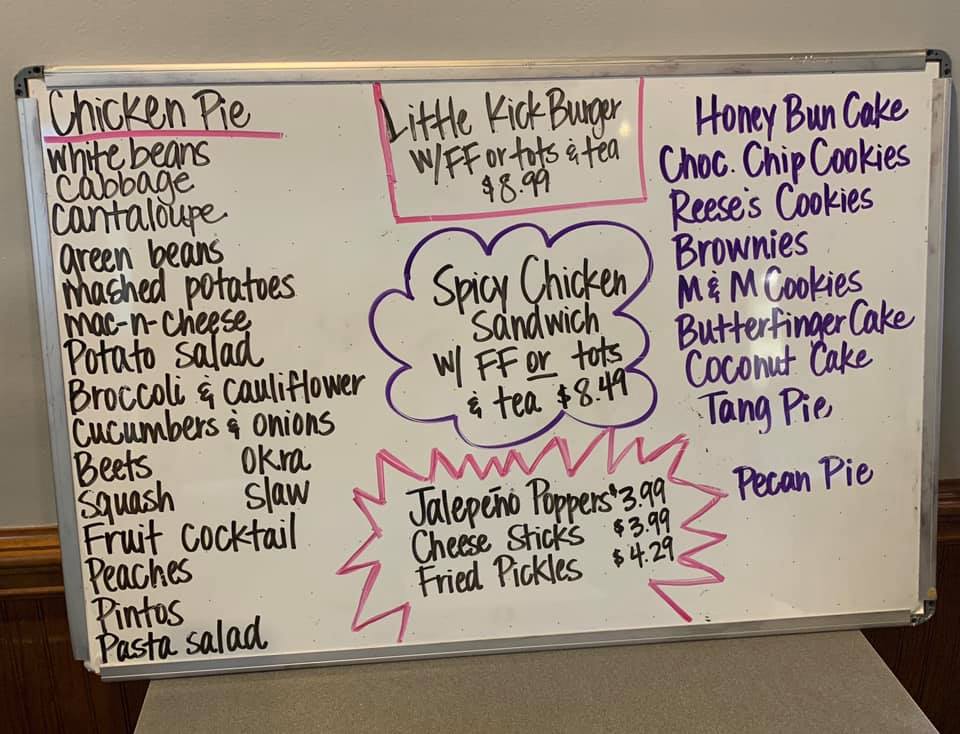 Chicken Pie
white beans
cabbage
cantaloupe
green beans
mashed potatoes
mac-n-cheese
Potato salad
Broccoli & cauliflower
Cucumbers & onions
Beets okra
Squash slaw
Fruit cocktail
Peaches
Pintos
Pasta salad
Little Kick Burger
W/FF or tots & tea
$8.99
Spicy Chicken
Sandwich
W/ FF or tots
& tea $8.49
Jalepeño Poppers $3.99
Cheese Sticks $3.99
Fried Pickles $4.29
Honey Bun Cake
Choc. Chip Cookies
Reese's Cookies
Brownies
M & M Cookies
Butterfinger Cake
Coconut Cake
Tang Pie
Pecan Pie